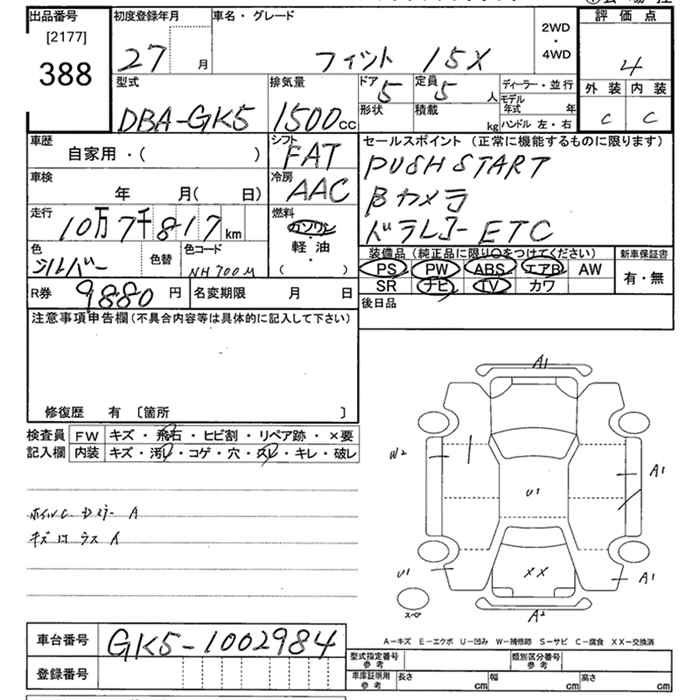 出品番号
[2177]
388
初度登録年月
27 月
車名・グレード
フィット 15X
2WD
・
4WD
評価点
4
外装 内装
C C
型式
DBA-GK5
排気量
1500 CC
ドア 5
定員 5 人
形状
積載 kg
ディーラー・並行
モデル年式 年
ハンドル 左・右
車歴
自家用・( )
シフト
FAT
セールスポイント (正常に機能するものに限ります)
PUSH START
Bカメラ
ドラレコー ETC
車検
年 月( 日)
冷房
AAC
走行
10万7千817km
燃料
ガソリン
・
軽・油
( )
色
シルバー
色替
色コード
NH700M
装備品 (純正品に限り○をつけてください)
PS PW ABS エアB AW
SR ナビ TV カワ
新車保証書
有・無
R券 9880円
名変期限 月 日
後日品
注意事項申告欄(不具合内容等は具体的に記入して下さい)
修復歴 有 〔箇所 〕
検査員
記入欄
FW キズ・飛石・ヒビ割・リペア跡・×要
内装 キズ・汚レ・コゲ・穴・スレ・キレ・破レ
A1
W2
A1
U1
U1
XX
A1
A2
スペア
A-キズ E-エクボ U-凹み W-補修跡 S-サビ C-腐食 XX-交換済
車台番号
GK5-1002984
登録番号
型式指定番号
参考
類別区分番号
参考
車庫証明用
参考
長さ cm
幅 cm
高さ cm